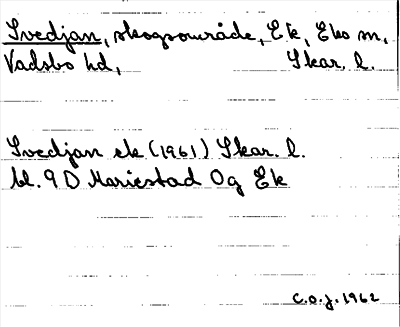 Svedjan, skogsområde, Ek, Eks sn,
Vadsbo hd, Skar. l.
Svedjan ek (1961) Skar. l.
bl. 9 D Mariestad Og Ek
C.O.J. 1962